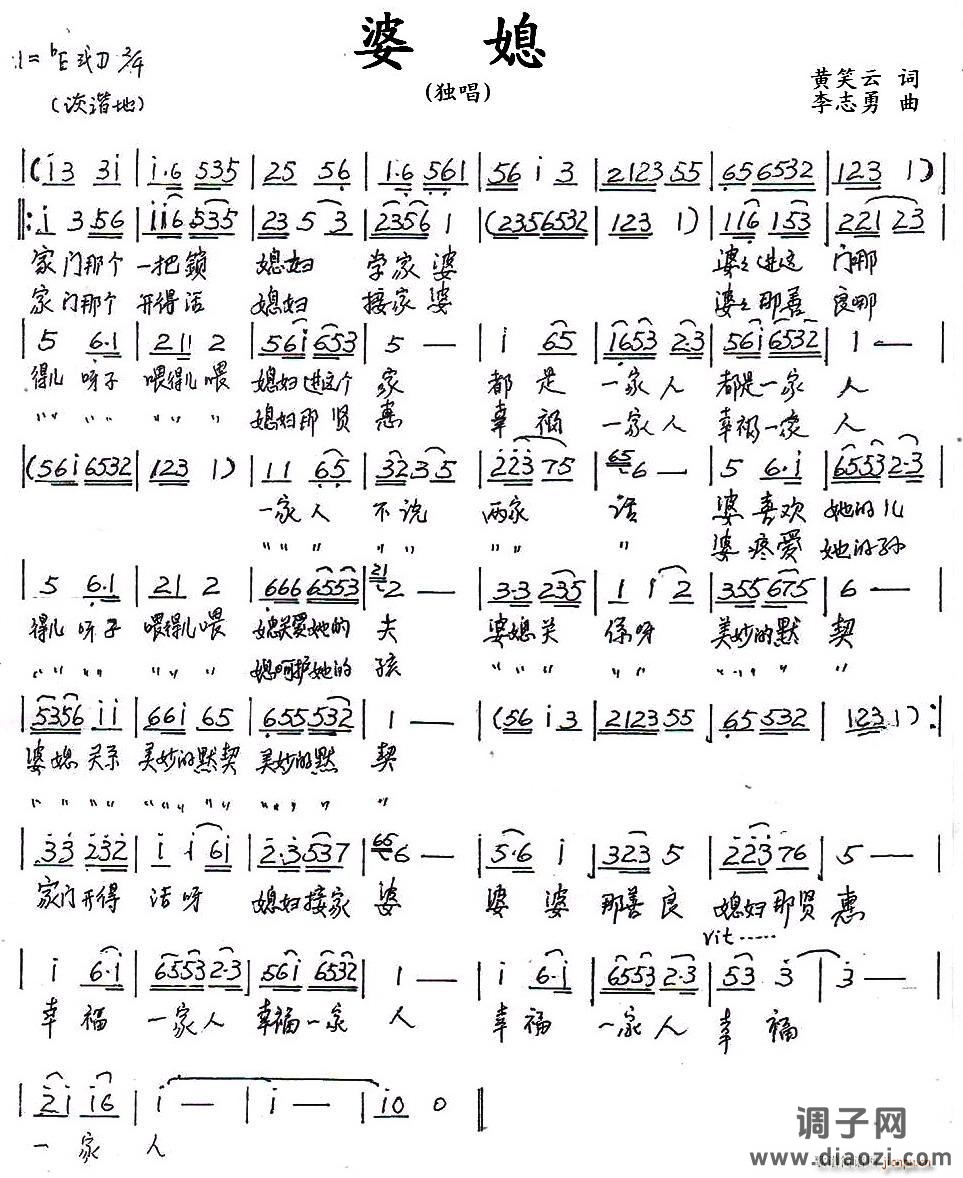 婆 媳
1= ♭E 或D 2/4
(独唱)
(诙谐地)
黄笑云 词
李志勇 曲
|(i3 3i | i·6 535 | 25 56 | 1·6 561 | 56 i 3 | 2123 55 | 65 6532 | 123 1)|
‖: i 3 56 | ii6 535 | 23 5 3 | 2356 1 | (2356532 | 123 1) | 116 153 | 221 23 |
家门那个 一把锁 媳妇 学家婆 婆婆进这 门那
家门那个 开得活 媳妇 接家婆 婆婆那善 良哪
| 5 6·1 | 211 2 | 56i 653 | 5 — | i 65 | 1653 2·3 | 56i 6532 | 1 — |
得儿呀子 喂得儿喂 媳妇进这个 家 都是 一家人 都是一家 人
〃 〃 〃 〃 〃 〃 媳妇那贤 惠 幸福 一家人 幸福一家 人
|(56i 6532 | 123 1) | 11 65 | 32 3 5 | 223 75 | 65 6 — | 5 6·i | 6553 2·3 |
一家人 不说 两家 话 婆喜欢 她的儿
〃 〃 〃 〃 〃 〃 婆疼爱 她的孙
| 5 6·1 | 21 2 | 666 6553 | 21 2 — | 3·3 235 | 1 1 2 | 355 675 | 6 — |
得儿呀子 喂得儿喂 媳关爱她的 夫 婆媳关 係呀 美妙的默 契
〃 〃 〃 〃 〃 〃 媳呵护她的 孩 〃 〃 〃 〃 〃 〃 〃 〃
| 5356 i i | 66i 65 | 655 532 | 1 — | (56 i 3 | 2123 55 | 65 532 | 123 1) :|
婆媳关系 美妙的默契 美妙的默 契
〃 〃 〃 〃 〃 〃 〃 〃 〃 〃
| 33 232 | i i 6i | 2·3 537 | 65 6 — | 5·6 i | 323 5 | 223 76 | 5 — |
家门开得 活呀 媳妇接家 婆 婆 婆 那善良 媳妇那贤 惠
vit……
| i 6·i | 6553 2·3 | 56i 6532 | 1 — | i 6·i | 6553 2·3 | 53 3 | 3 — |
幸福 一家人 幸福一家 人 幸福 一家人 幸 福
| 2i i6 | i — | i — | i0 0 ‖
一家 人
调子网
www.diaozi.com